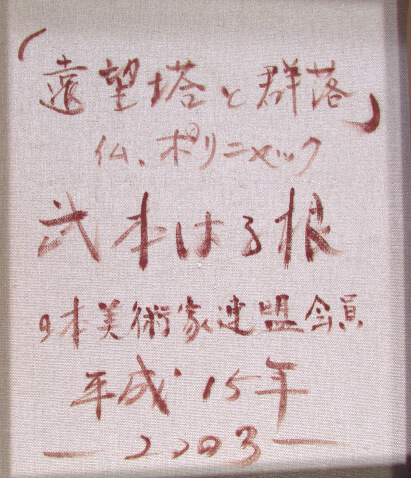 「遠望塔と群落」
仏、ポリニャック
武本はる根
日本美術家連盟会員
平成15年
—2003—